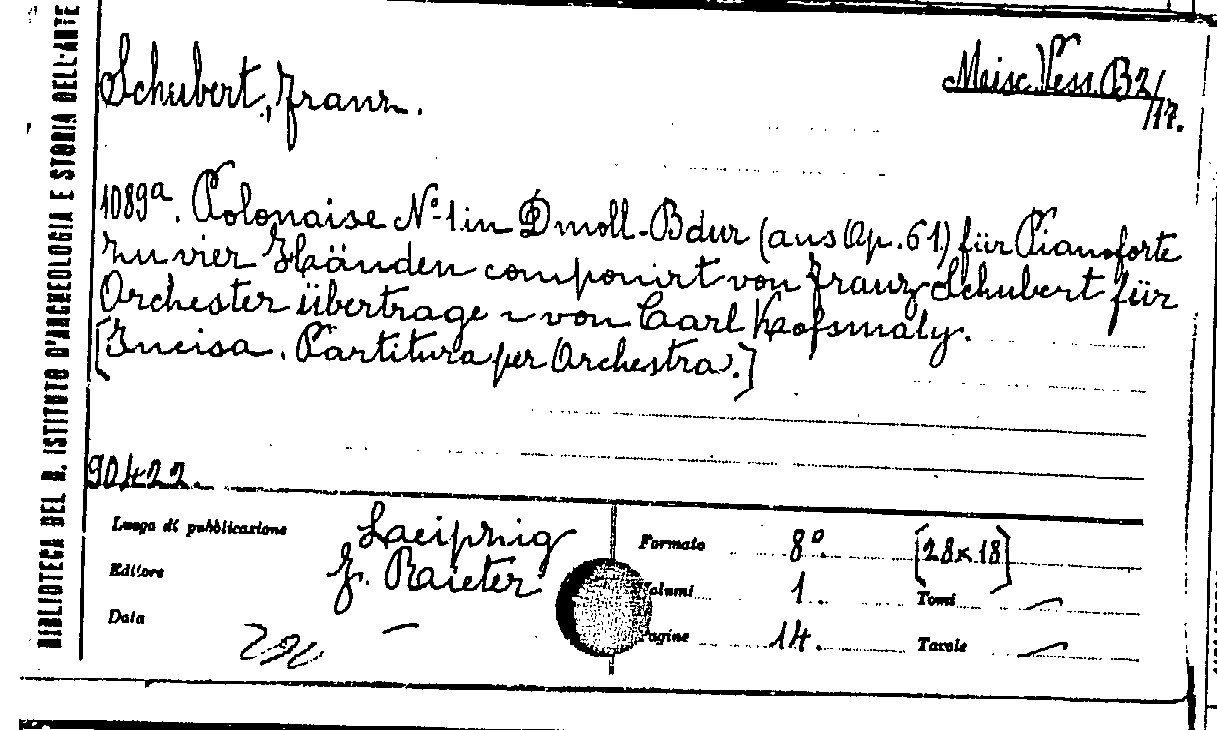 BIBLIOTECA DEL R. ISTITUTO D'ARCHEOLOGIA E STORIA DELL'ARTE
Schubert, Franz.
Misc. Vess. B 2/17.
1089a. Polonaise No. 1 in D moll-B dur (aus Op. 61) für Pianoforte
zu vier Händen componirt von Franz Schubert für
Orchester übertragen von Carl Kossmaly.
[Incisa. Partitura per Orchestra.]
90422.
Luogo di pubblicazione Leipzig
Editore J. Raieter
Data —
Formato 8° [28x18]
Volumi 1 Tomi —
Pagine 14. Tavole —